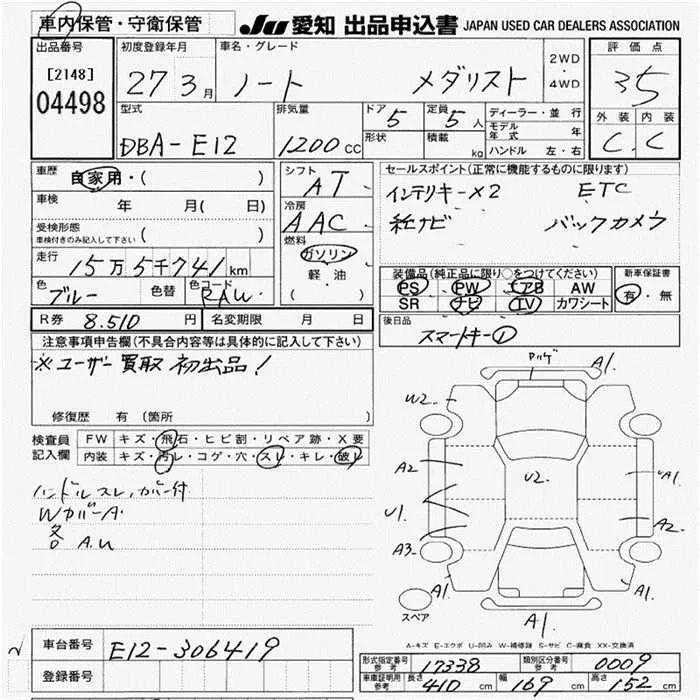 車内保管・守衛保管
JU 愛知 出品申込書 JAPAN USED CAR DEALERS ASSOCIATION
出品番号
[2148]
04498
初度登録年月
27 3月
車名・グレード
ノート メダリスト
2WD
・
4WD
評価点
35
外装 内装
C. C
型式
DBA-E12
排気量
1200cc
ドア
5
定員
5人
形状
積載
kg
ディーラー・並行
モデル年式 年
ハンドル 左・右
車歴
自家用・( )
車検
年 月( 日)
受検形態
車検付きのみ記入して下さい ( )
走行
15万5千741km
色
ブルー
色替
色コード
RAW
シフト
AT
冷房
AAC
燃料
ガソリン
軽・油
( )
セールスポイント(正常に機能するものに限ります)
インテリキー×2 ETC
純ナビ バックカメラ
装備品(純正品に限り○をつけてください)
PS PW エアB AW
SR ナビ TV カワシート
新車保証書
有・無
後日品
スマートキー①
R券 8.510円
名変期限 月 日
注意事項申告欄(不具合内容等は具体的に記入して下さい)
※ユーザー買取 初出品!
修復歴 有(箇所 )
検査員記入欄
FW キズ・飛石・ヒビ割・リペア跡・X要
内装 キズ・汚レ・コゲ・穴・スレ・キレ・破レ
ハンドルスレ、カバー付
WカバーA
各 A.U
A1.
W2.
A2
U2.
A1.
U1.
A2.
A3.
A1.
A1.
A1.
スペア
A-キズ E-エクボ U-凹み W-補修跡 S-サビ C-腐食 XX-交換済
車台番号
E12-306419
登録番号
型式指定番号 参考
17338
類別区分番号 参考
0009
車庫証明用 参考
長さ 410cm
幅 169cm
高さ 152cm